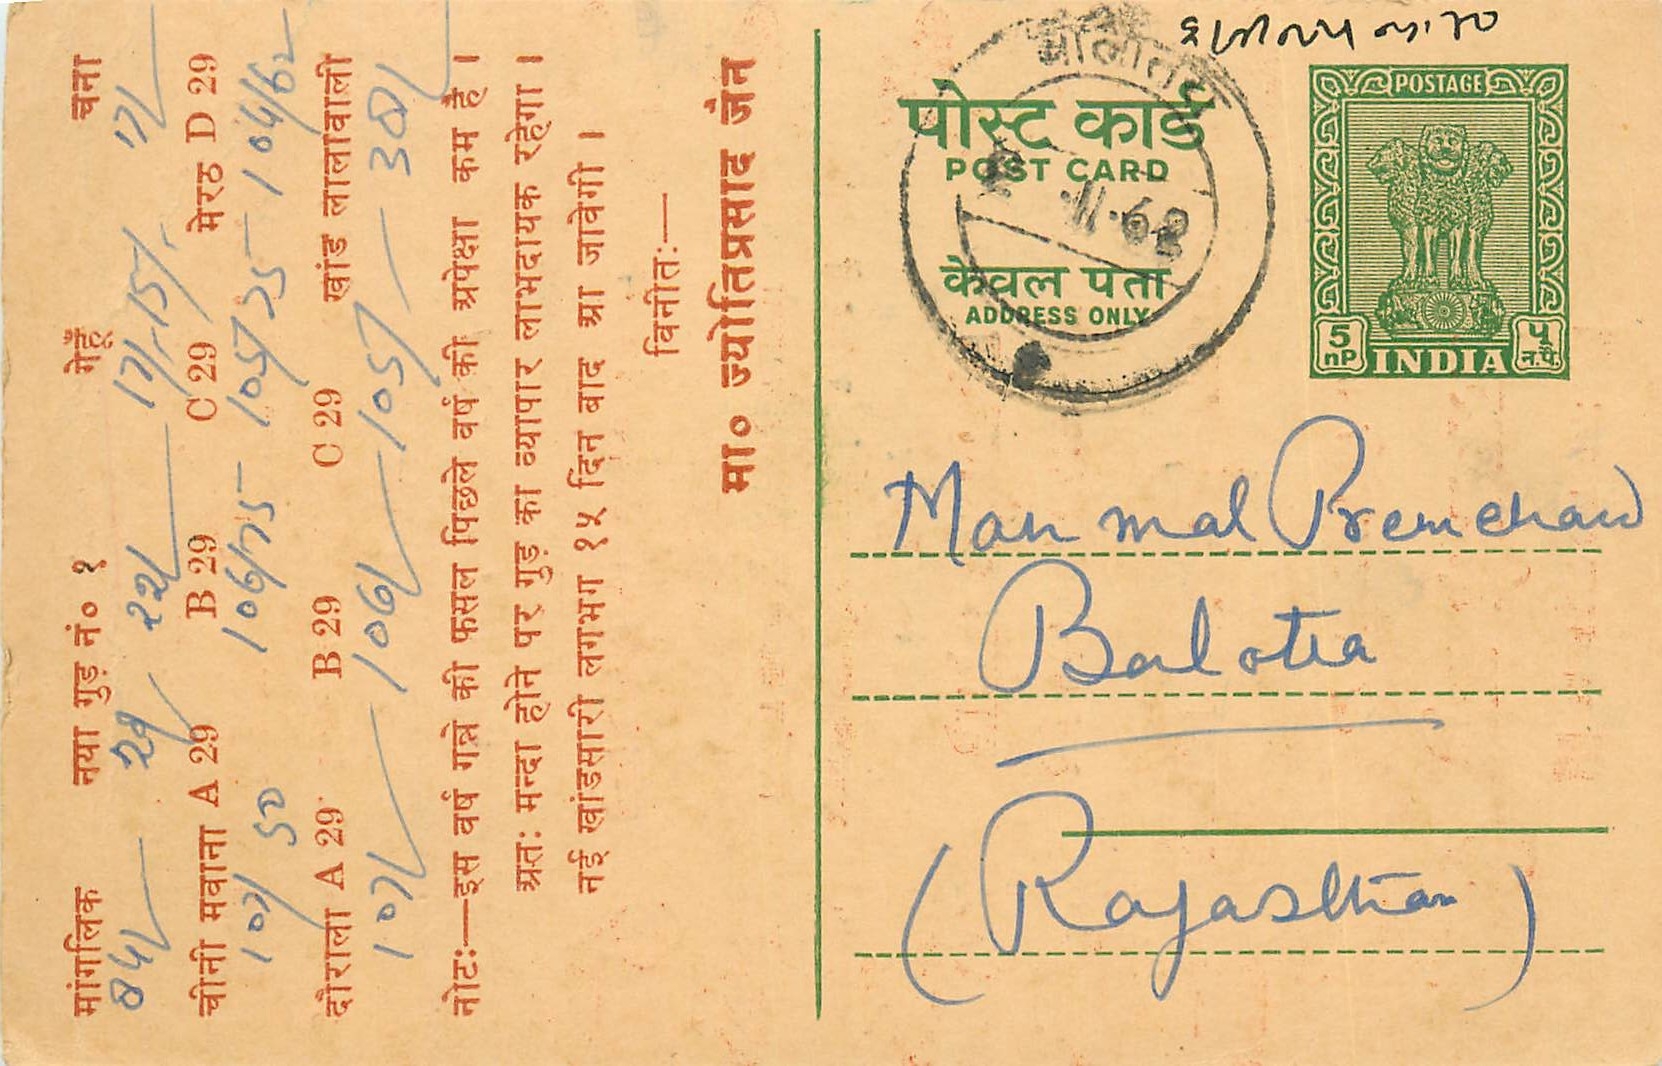 मांगलिक नया गुड़ नं० १ गेहूँ चना
चीनी मवाना A 29 B 29 C 29 मेरठ D 29
107/50 106/75 - 105/75 - 104/62
दौराला A 29 B 29 C 29 खांड लालावाली
107/- 106/- 105/- 38/-
नोट:—इस वर्ष गन्ने की फसल पिछले वर्ष की अपेक्षा कम है ।
अत: मन्दा होने पर गुड़ का व्यापार लाभदायक रहेगा ।
नई खांडसारी लगभग १५ दिन बाद आ जावेगी ।
विनीत:—
मा० ज्योतिप्रसाद जैन
पोस्ट कार्ड
POST CARD
केवल पता
ADDRESS ONLY
POSTAGE
5 nP INDIA ५ न.पै.
Man mal Premchand
Balotra
(Rajasthan)